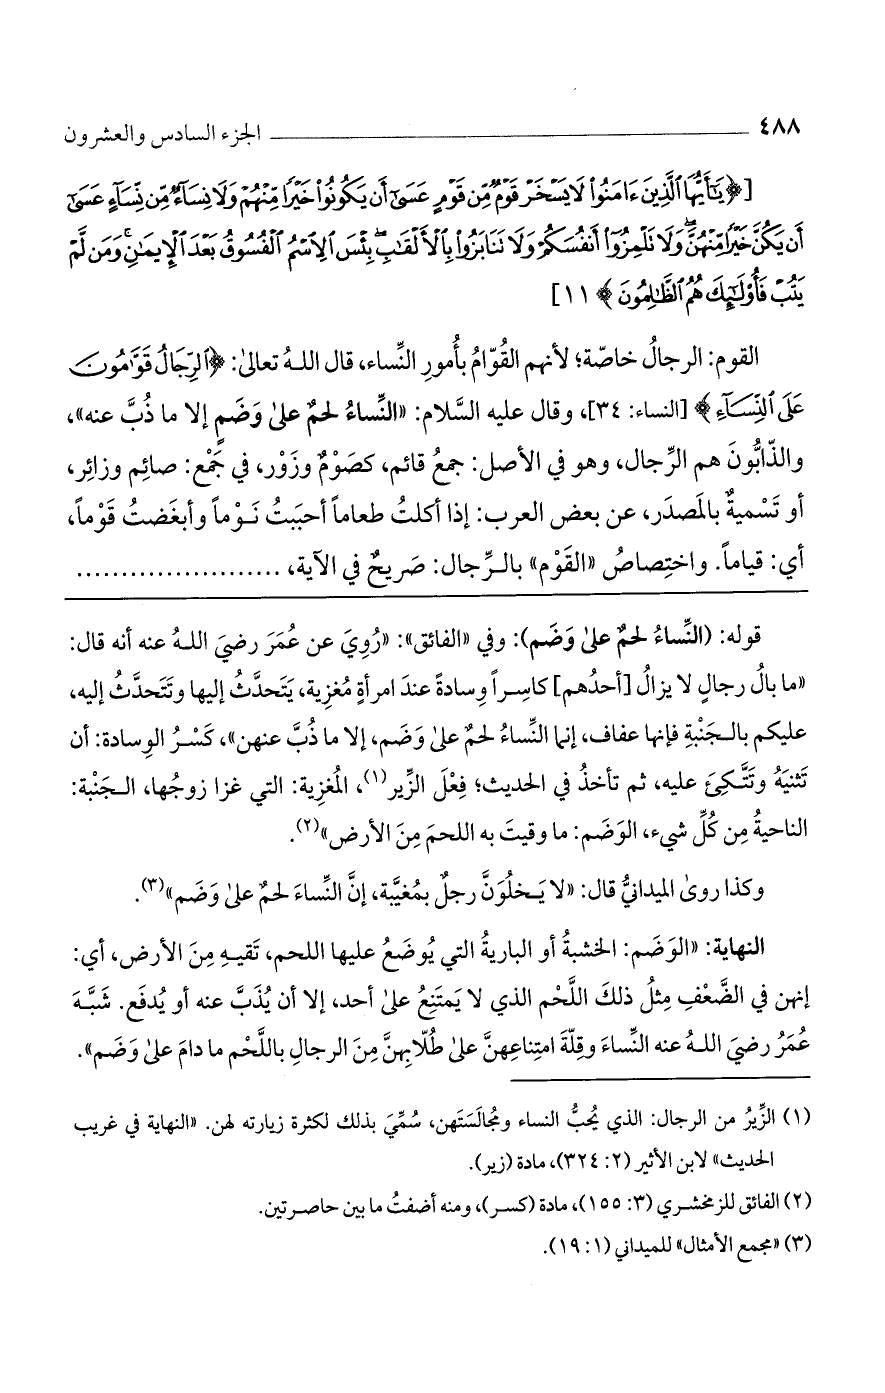 ٤٨٨ ــــــــــــ الجزء السادس والعشرون
[﴿يَٰٓأَيُّهَا ٱلَّذِينَ ءَامَنُوا۟ لَا يَسْخَرْ قَوْمٌ مِّن قَوْمٍ عَسَىٰٓ أَن يَكُونُوا۟ خَيْرًا مِّنْهُمْ وَلَا نِسَآءٌ مِّن نِّسَآءٍ عَسَىٰٓ
أَن يَكُنَّ خَيْرًا مِّنْهُنَّ ۖ وَلَا تَلْمِزُوٓا۟ أَنفُسَكُمْ وَلَا تَنَابَزُوا۟ بِٱلْأَلْقَٰبِ ۖ بِئْسَ ٱلِٱسْمُ ٱلْفُسُوقُ بَعْدَ ٱلْإِيمَٰنِ ۚ وَمَن لَّمْ
يَتُبْ فَأُو۟لَٰٓئِكَ هُمُ ٱلظَّٰلِمُونَ﴾ ١١]
القوم: الرجالُ خاصّة؛ لأنهم القُوّامُ بأُمورِ النِّساء، قال اللهُ تعالىٰ: ﴿ٱلرِّجَالُ قَوَّٰمُونَ
عَلَى ٱلنِّسَآءِ﴾ [النساء: ٣٤]، وقال عليه السَّلام: «النِّساءُ لحمٌ علىٰ وَضَمٍ إلا ما ذُبَّ عنه»،
والذّابُّونَ هم الرِّجال، وهو في الأصل: جمعُ قائم، كصَوْمٌ وزَوْر، في جَمْع: صائِم وزائِر،
أو تَسْميةٌ بالمَصدَر، عن بعض العرب: إذا أكلتُ طعاماً أحبَبتُ نَوْماً وأبغَضتُ قَوْماً،
أي: قياماً. واختِصاصُ «القَوْم» بالرِّجال: صَريحٌ في الآية، .......................
قوله: (النِّساءُ لحمٌ علىٰ وَضَم): وفي «الفائق»: «رُوِيَ عن عُمَرَ رضيَ اللهُ عنه أنه قال:
«ما بالُ رجالٍ لا يزالُ [أحدُهم] كاسِراً وِسادةً عندَ امرأةٍ مُغزِية، يَتَحدَّثُ إليها وتَتَحدَّثُ إليه،
عليكم بالجَنْبةِ فإنها عفاف، إنما النِّساءُ لحمٌ علىٰ وَضَم، إلا ما ذُبَّ عنهن»، كَسْرُ الوِسادة: أن
تَثنيَهُ وتَتَّكِئَ عليه، ثم تأخذُ في الحديث؛ فِعْلَ الزِّير(١)، المُغزِية: التي غزا زوجُها، الجَنْبة:
الناحيةُ مِن كُلِّ شيء، الوَضَم: ما وقيتَ به اللحمَ مِنَ الأرض»(٢).
وكذا روىٰ الميدانيُّ قال: «لا يَخلُوَنَّ رجلٌ بمُغيَّبة، إنَّ النِّساءَ لحمٌ علىٰ وَضَم»(٣).
النهاية: «الوَضَم: الخشبةُ أو الباريةُ التي يُوضَعُ عليها اللحم، تَقيهِ مِنَ الأرض، أي:
إنهن في الضَّعْفِ مِثلُ ذلكَ اللَّحْم الذي لا يَمتَنِعُ علىٰ أحد، إلا أن يُذَبَّ عنه أو يُدفَع. شَبَّهَ
عُمَرُ رضيَ اللهُ عنه النِّساءَ وقِلّةَ امتِناعِهنَّ علىٰ طُلّابِهنَّ مِنَ الرجالِ باللَّحْم ما دامَ علىٰ وَضَم».
(١) الزِّيرُ من الرجال: الذي يُحِبُّ النساء ومُجالَسَتَهن، سُمِّيَ بذلك لكثرة زيارته لهن. «النهاية في غريب
الحديث» لابن الأثير (٢: ٣٢٤)، مادة (زير).
(٢) الفائق للزمخشري (٣: ١٥٥)، مادة (كسر)، ومنه أضفتُ ما بين حاصرتين.
(٣) «مجمع الأمثال» للميداني (١: ١٩).